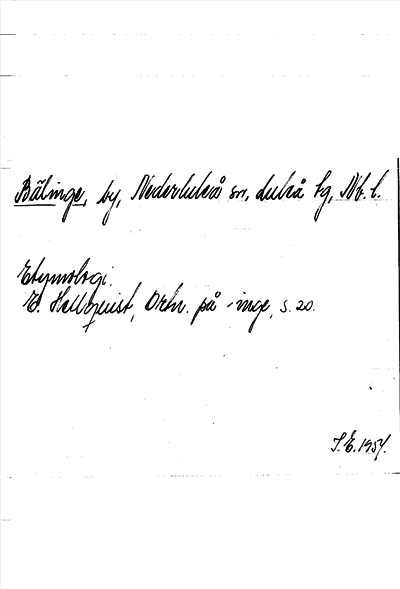 Bälinge, by, Nederluleå sn, Luleå kg, Nb. l.
Etymologi.
E. Hellquist, Ortn. på -inge, s. 20.
S.E. 1954.